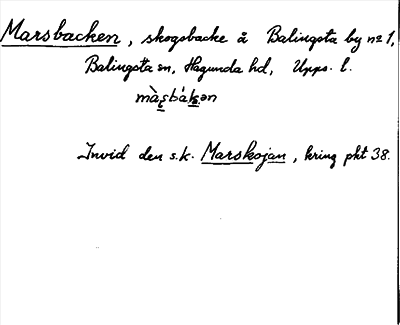 Marsbacken, skogsbacke å Balingsta by nr 1,
Balingsta sn, Hagunda hd, Upps. l.
màʂbákən
Invid den s.k. Marskojan, kring pkt 38.